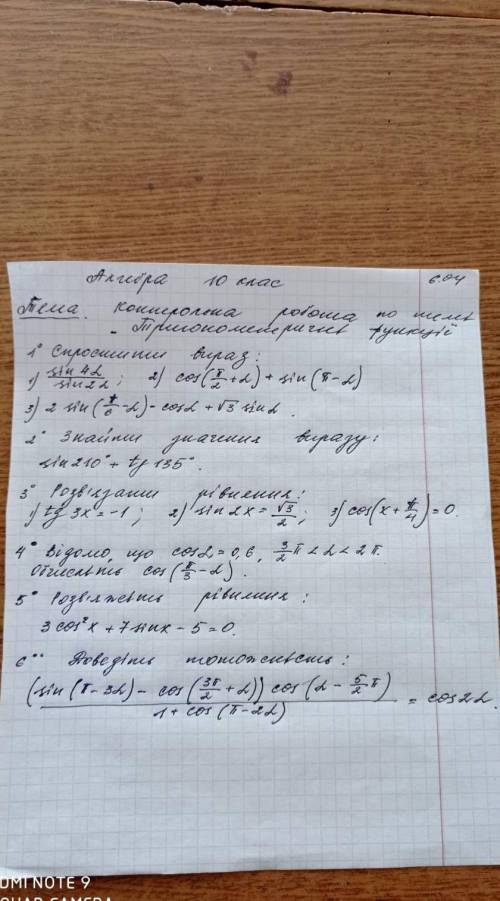 Алгебра 10 клас 6.04
Тема. Контрольна робота по темі
"Тригонометричні функції
1° Спростити вираз:
1) sin 4α / sin 2α; 2) cos(π/2 + α) + sin(π - α)
3) 2 sin(π/6 - α) - cos α + √3 sin α.
2° Знайти значення виразу:
sin 210° + tg 135°.
3° Розвязати рівняння:
1) tg 3x = -1; 2) sin 2x = √3/2; 3) cos(x + π/4) = 0.
4° Відомо, що cos α = 0,6, 3/2 π < α < 2π.
Обчисліть cos(π/3 - α).
5° Розвяжіть рівняння:
3 cos² x + 7 sin x - 5 = 0.
6°° Доведіть тотожність:
(sin(π - 3α) - cos(3π/2 + α)) cos(α - 5/2 π) / 1 + cos(π - 2α) = cos 2α.
DMI NOTE 9
QUAD CAMERA